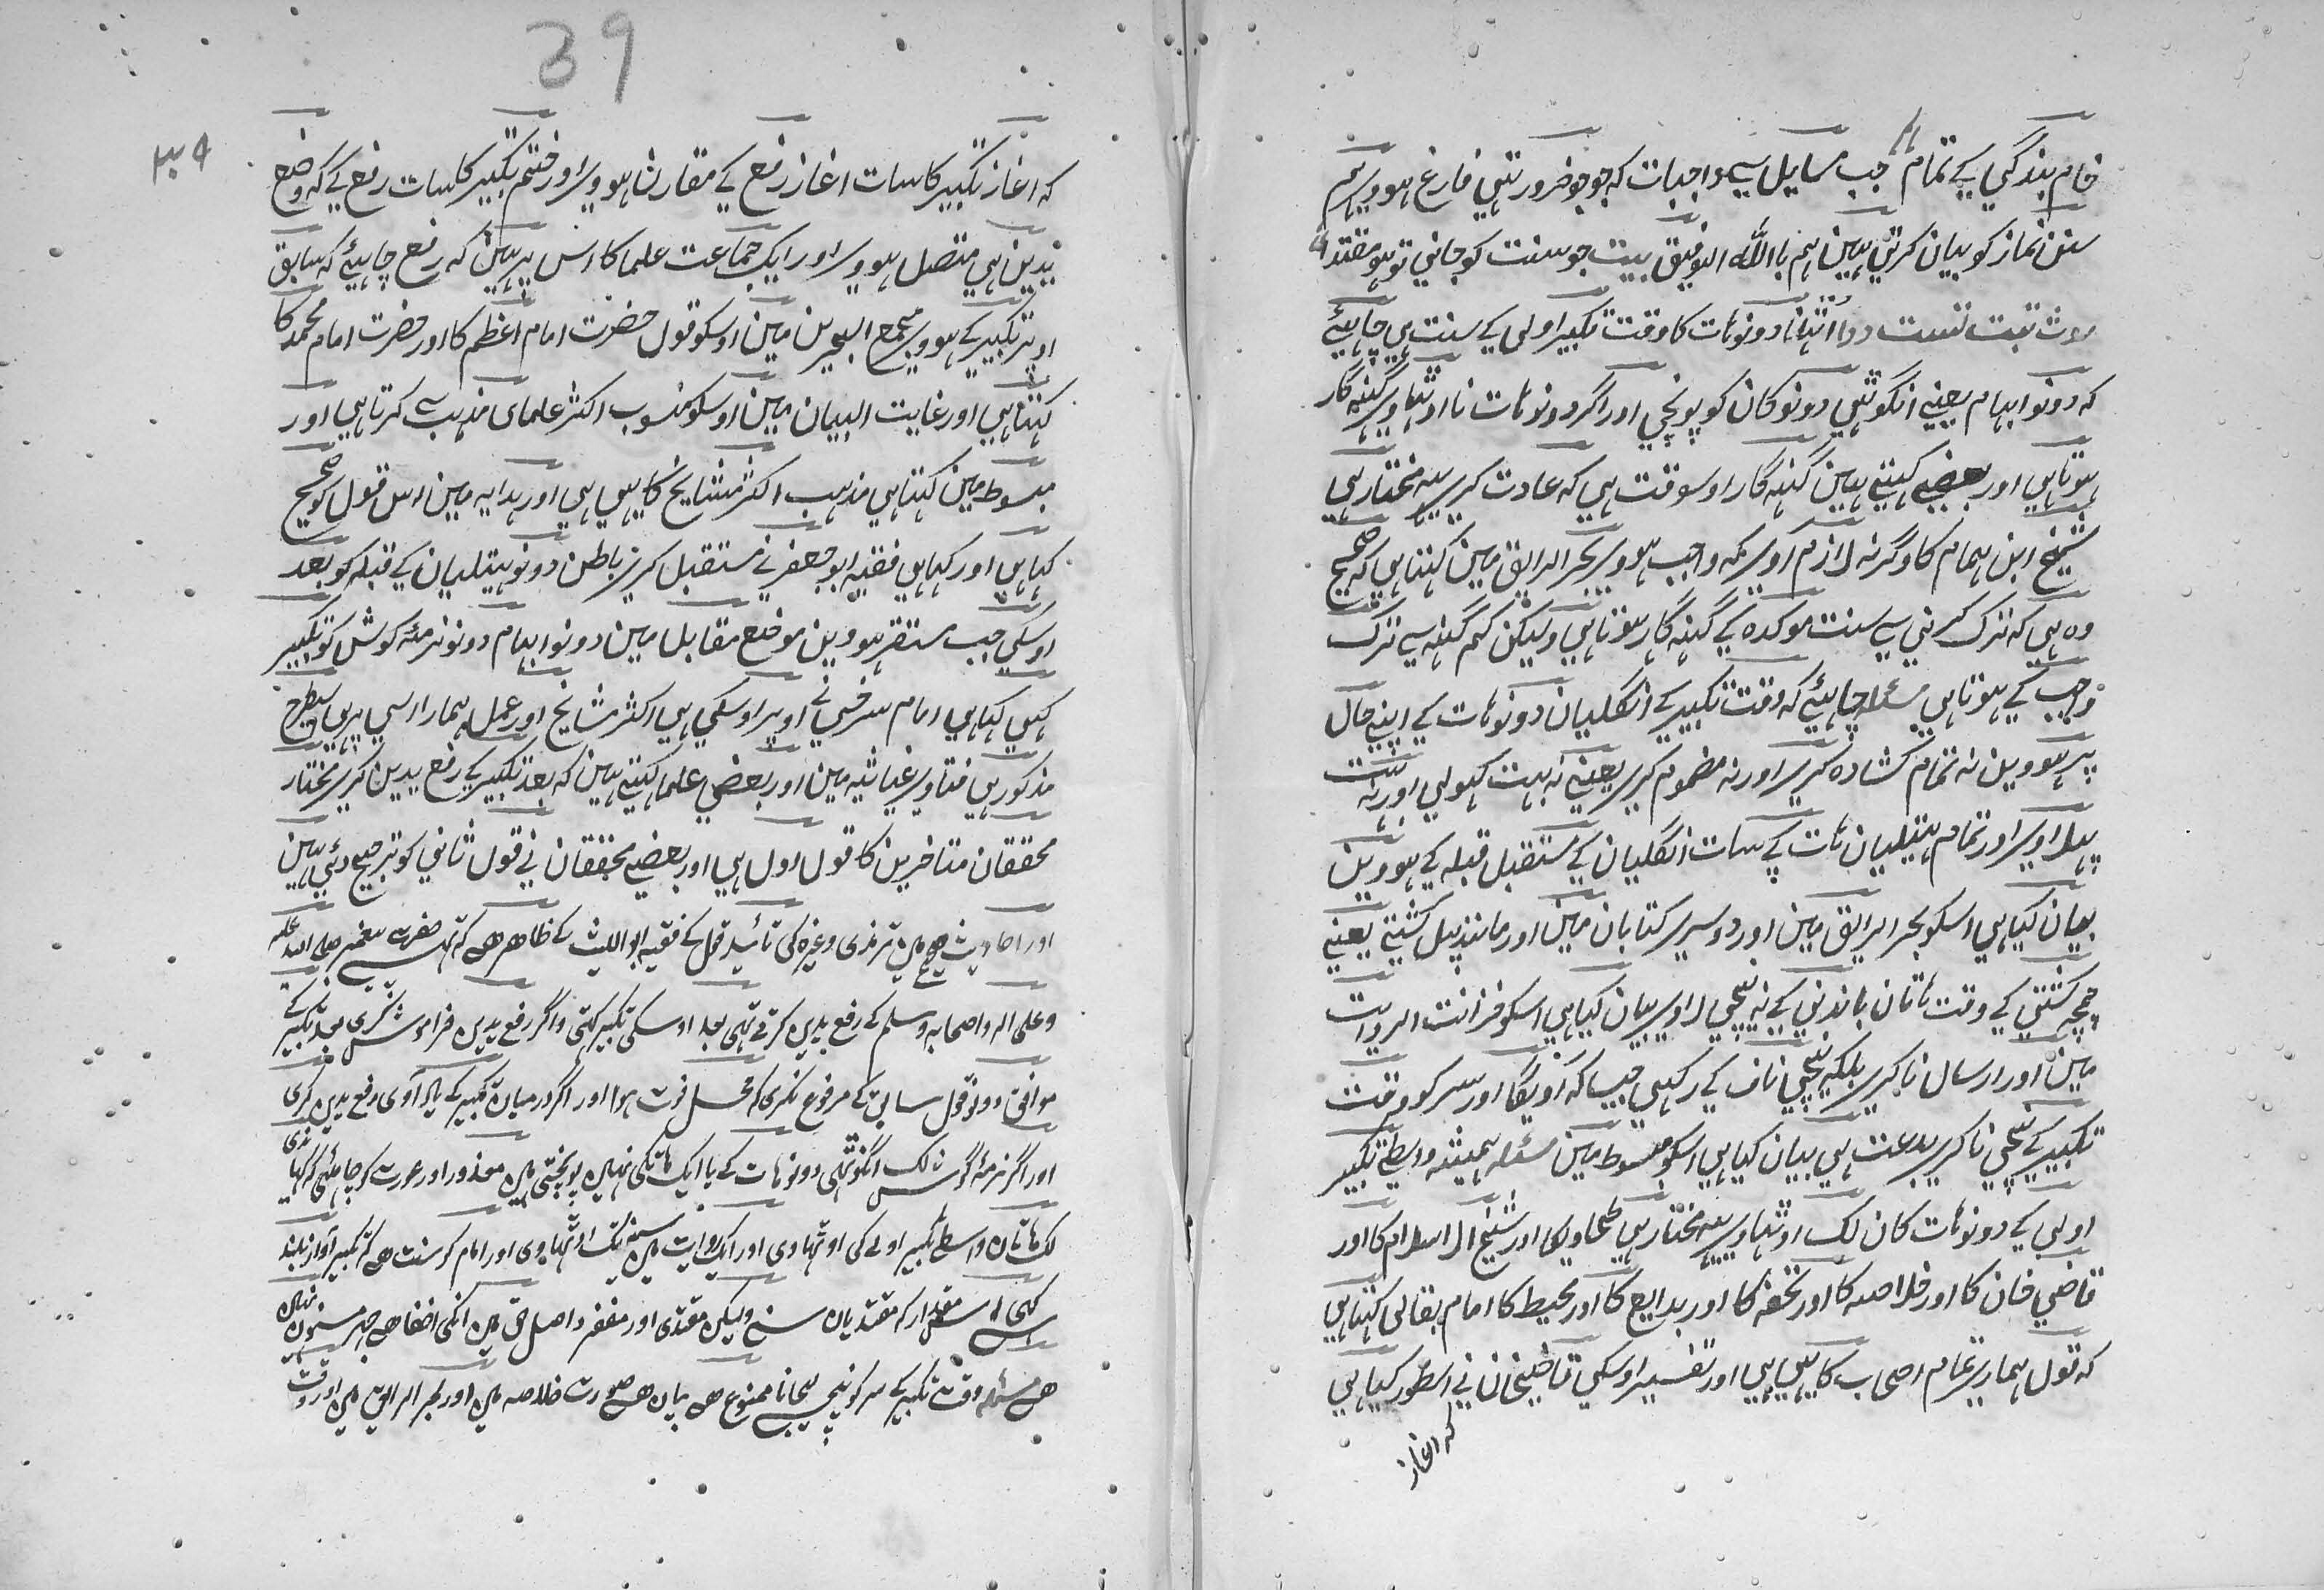 خام بندگی کے تمام جب مسایل سے واجبات کہ جو جو ضرور تہی فارغ ہووے ہم
سنن نماز کو بیان کرتے ہین ہم باللہ التوفیق بیت جو سنت کو جانی تو ہو مقتدا
اتہانا دونو ہات کا وقت تکبیر اولی کے سنت ہی چاہئے
کہ دونو ابہام یعنے انگوٹہی دونو کان کو پونچی اور اگر دونو ہات نا اوٹہاوے گنہ گار
ہوتا ہی اور بعضے کہتے ہین گنہ گار اوسوقت ہی کہ عادت کرے یہہ مختار ہی
شیخ ابن ہمام کا وگرنہ لازم آوے کہ واجب ہووے بحر الرایق مین کہتا ہی کہ صحیح
وہ ہی کہ ترک کرنی سے سنت موکدہ کے گنہ گار ہوتا ہی ولیکن کم گنہ سے ترک
وجب کے ہوتا ہی مسئلہ چاہئے کہ وقت تکبیر کے انگلیان دونو ہات کے اپنے حال
پر ہووین نہ تمام کشادہ کرے اور نہ مضموم کرے یعنے نہ بہت کہولی اور نہ بہت
ملاوے اور تمام ہتیلیان ہات کے سات انگلیان کے مستقبل قبلہ کے ہووین
بیان کیا ہی اسکو بحر الرایق مین اور دوسرے کتابان مین اور مانند پیل کشتے یعنے
کشتی کے وقت ہاتان باندنی کے نہ نیچی لاوے بیان کیا ہی اسکو خزانت الروایت
مین اور ارسال نا کرے بلکہ نیچی ناف کے رکہی جیسا کہ آویگا اور سر کو وقت
تکبیر کے نیچی نا کرے بدعت ہی بیان کیا ہی اسکو مبسوط مین مسئلہ ہمیشہ واسطے تکبیر
اولی کے دونو ہات کان لک اوٹہاوے یہہ مختار ہی طحاوی کا اور شیخ الاسلام کا اور
قاضی خان کا اور خلاصہ کا اور تحفہ کا اور بدایع کا اور محیط کا امام بقالی کہتا ہی
کہ قول ہمارے تمام اصحاب کا یہی ہی اور تفسیر اوسکی قاضیخان نے اسطور کیا ہی
کہ اغاز
39
۳۹
کہ اغاز تکبیر کا سات اغاز رفع کے مقارن ہووے اور ختم تکبیر کا سات رفع کے کہ وضع
یدین ہی متصل ہووے اور ایک جماعت علما کا اس پر ہین کہ رفع چاہئے کہ سابق
اوپر تکبیر کے ہووے مجمع البحرین مین اوسکو قول حضرت امام اعظم کا اور حضرت امام محمد کا
کہتا ہی اور غایت البیان مین اوسکو منسوب اکثر علمای مذہب سے کرتا ہی اور
مبسوط مین کہتا ہی مذہب اکثر مشایخ کا یہی ہی اور ہدایہ مین اس قول کو صحیح
کیا ہی اور کہا ہی فقیہ ابو جعفر نے مستقبل کرے باطن دونو ہتیلیان کے قبلہ کو بعد
اوسکی جب مستقر ہووین موضع مقابل مین دونو ابہام دونو نرمۂ گوش کو تکبیر
کہی کہا ہی امام سرخسی نے اوپر اوسکی ہی اکثر مشایخ اور عمل ہمارا اسی پر ہی اسطرح
مذکور ہی فتاوے غیاثیہ مین اور بعضے علما کہتے ہین کہ بعد تکبیر کے رفع یدین کرے مختار
محققان متاخرین کا قول اول ہی اور بعضے محققان نے قول ثانی کو ترجیح دئے ہین
اور احادیث صحیح مین ترمذی وغیرہ کی تائید قول کے فقیہ ابو اللیث کے ظاہر ہے کہ پیغمبر صلی اللہ علیہ
وعلی الہ واصحابہ وسلم کے رفع یدین کرتے تہی بعد اوسکی تکبیر کہتی واگر رفع یدین فراموش کرے بعد تکبیر کے
موافق دونو قول سابق کے مرفوع نکری کہ محل فوت ہوا اور اگر درمیان تکبیر کے یاد آوی رفع یدین کری
اور اگر نرمۂ گوش لک انگوٹہی دونو ہات کے یا ایک ہات کی نہین پونچتی ہین معذور اور عورت کو چاہئے کہ
لک ہاتان واسطے تکبیر اولے کی اوٹہاوی اور ایک روایت مین سینہ تک اوٹہاوی اور امام کو سنت ہے کہ تکبیر آواز بلند
کہی اس مقدار کہ مقتدیان سنے ولیکن مقتدی اور منفرد اصل حق مین انکی اخفا ہے جہر مسنون نہین
ہے مسئلہ وقت تکبیر کے سر کو نیچے لیجانا ممنوع ہے بیان ہے صورت خلاصہ مین اور بحر الرایق مین اور وقت